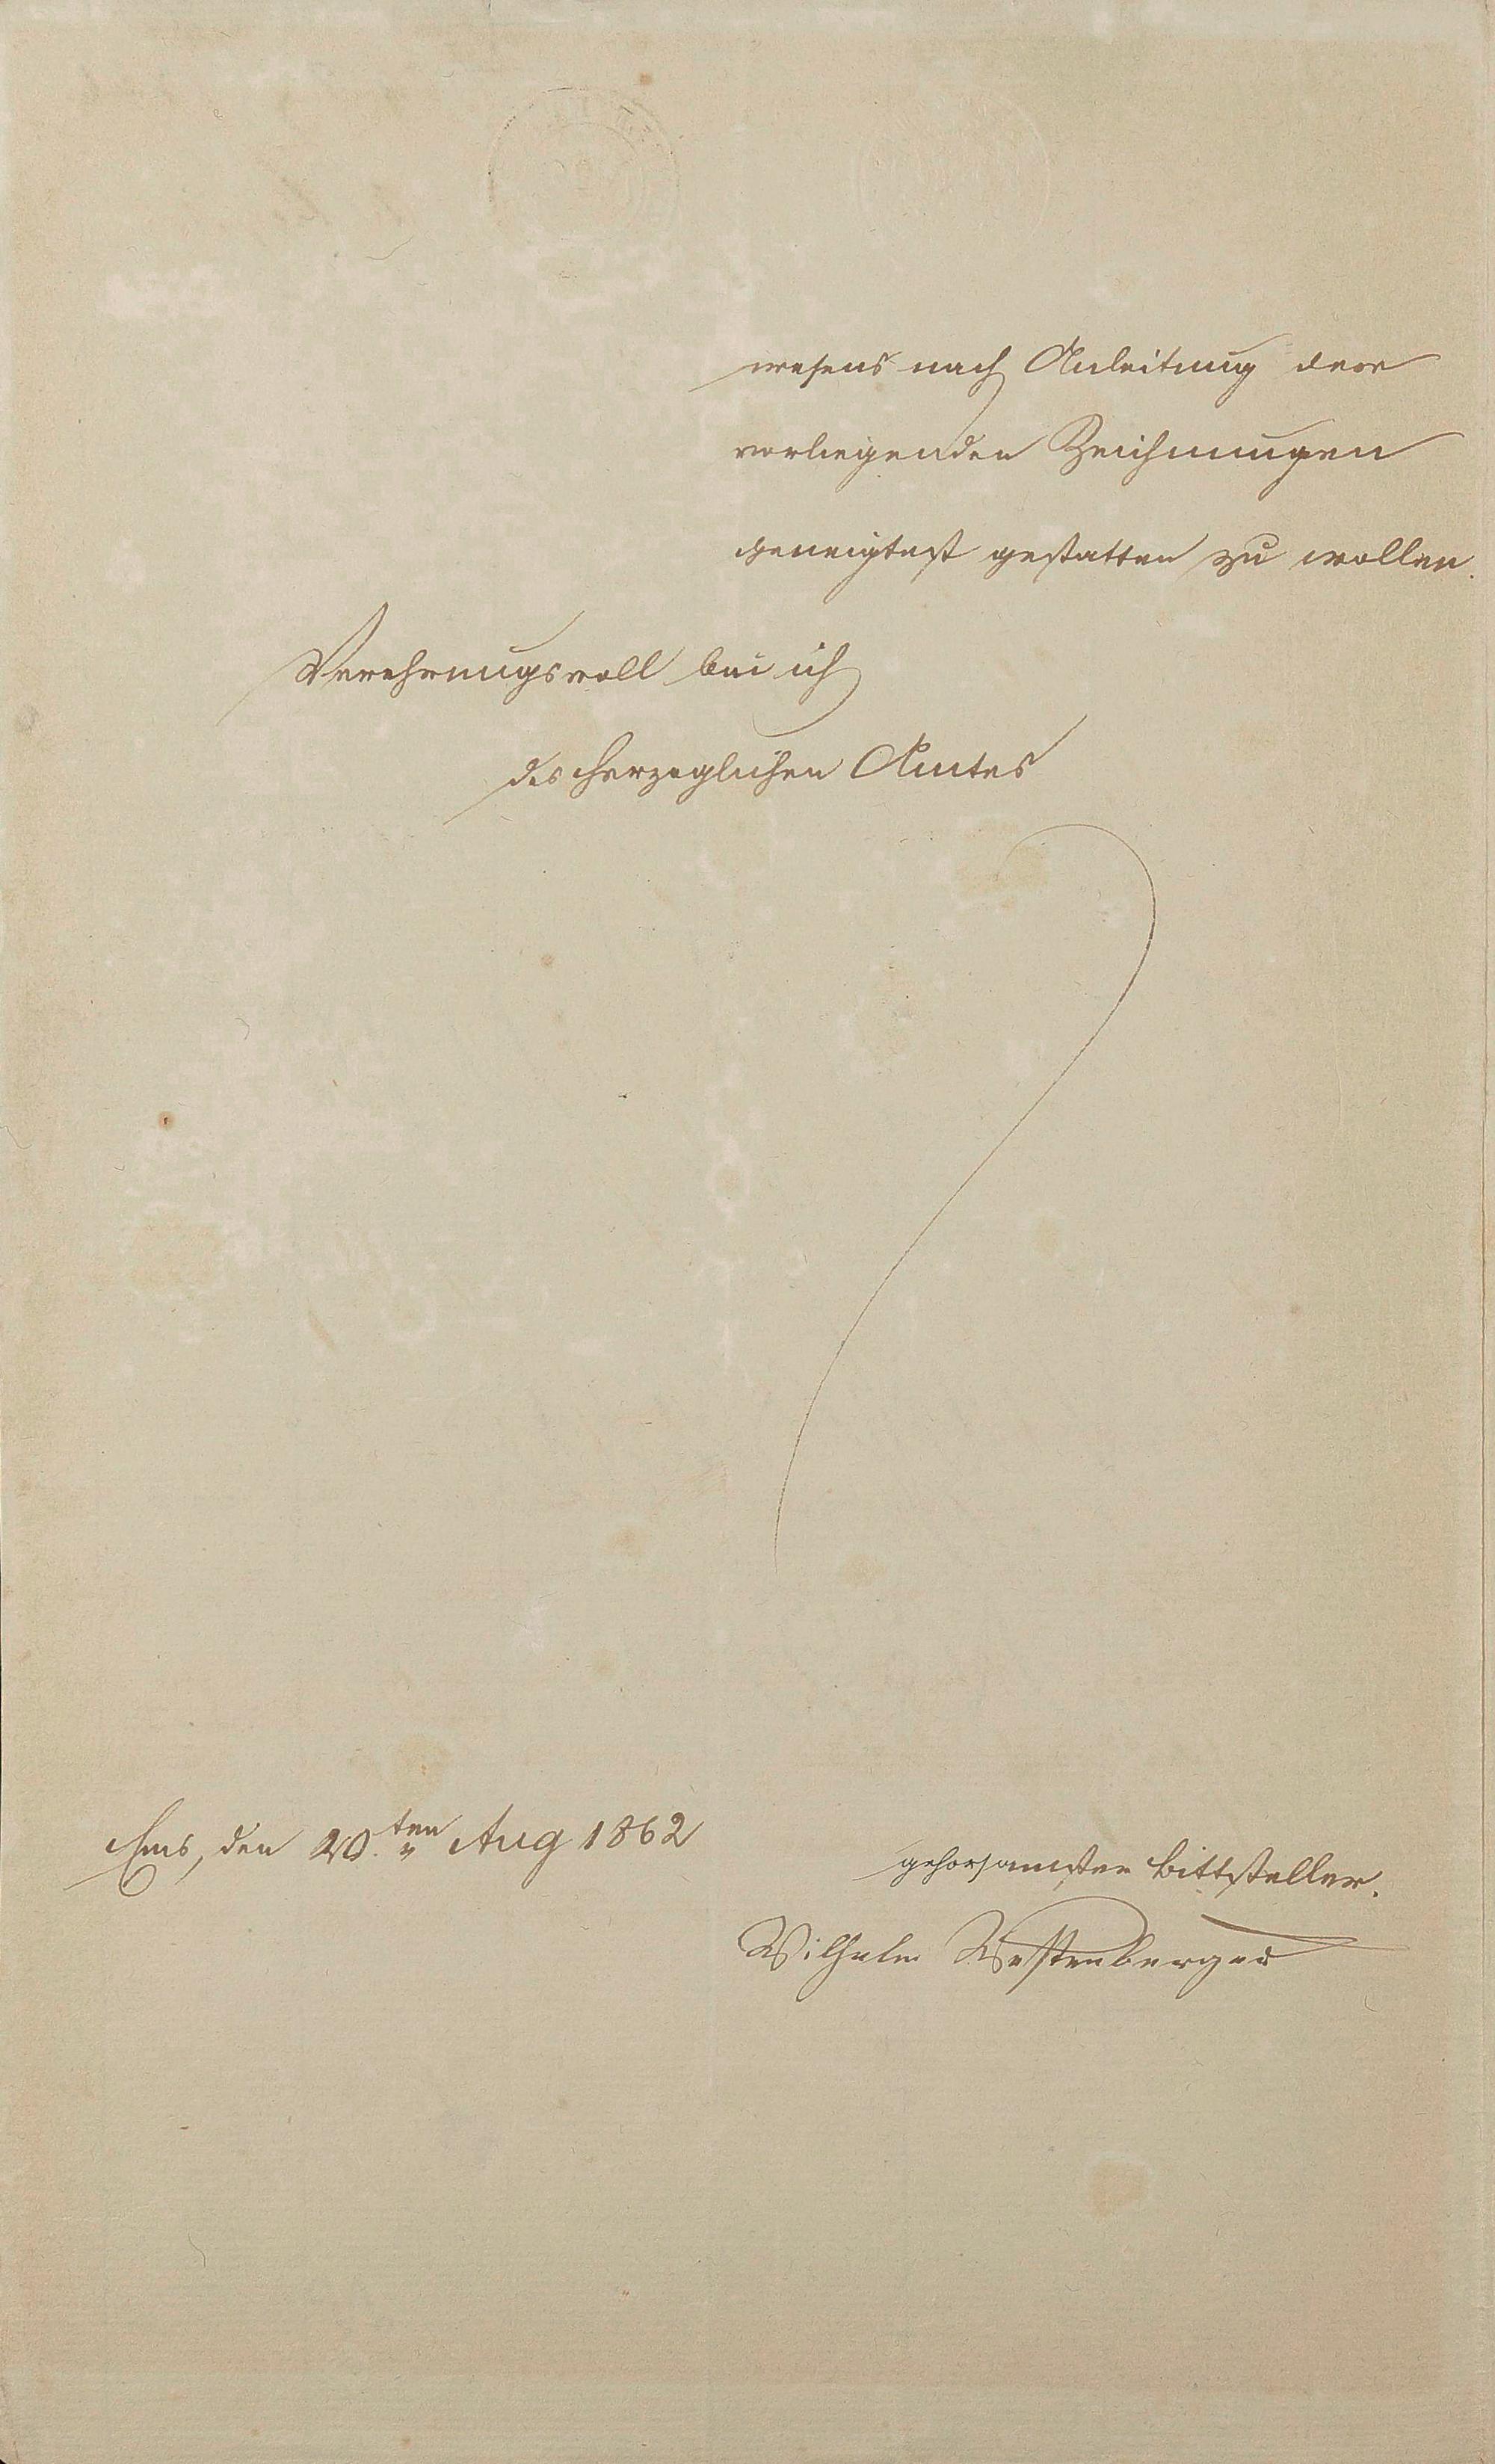 wesens nach Anleitung der
vorliegenden Zeichnungen
geneigtest gestatten zu wollen.
Verehrungsvoll bin ich
des Herzoglichen Amtes
Ems, den 20.ten Aug 1862
gehorsamster Bittsteller.
Wilhelm Westenberger